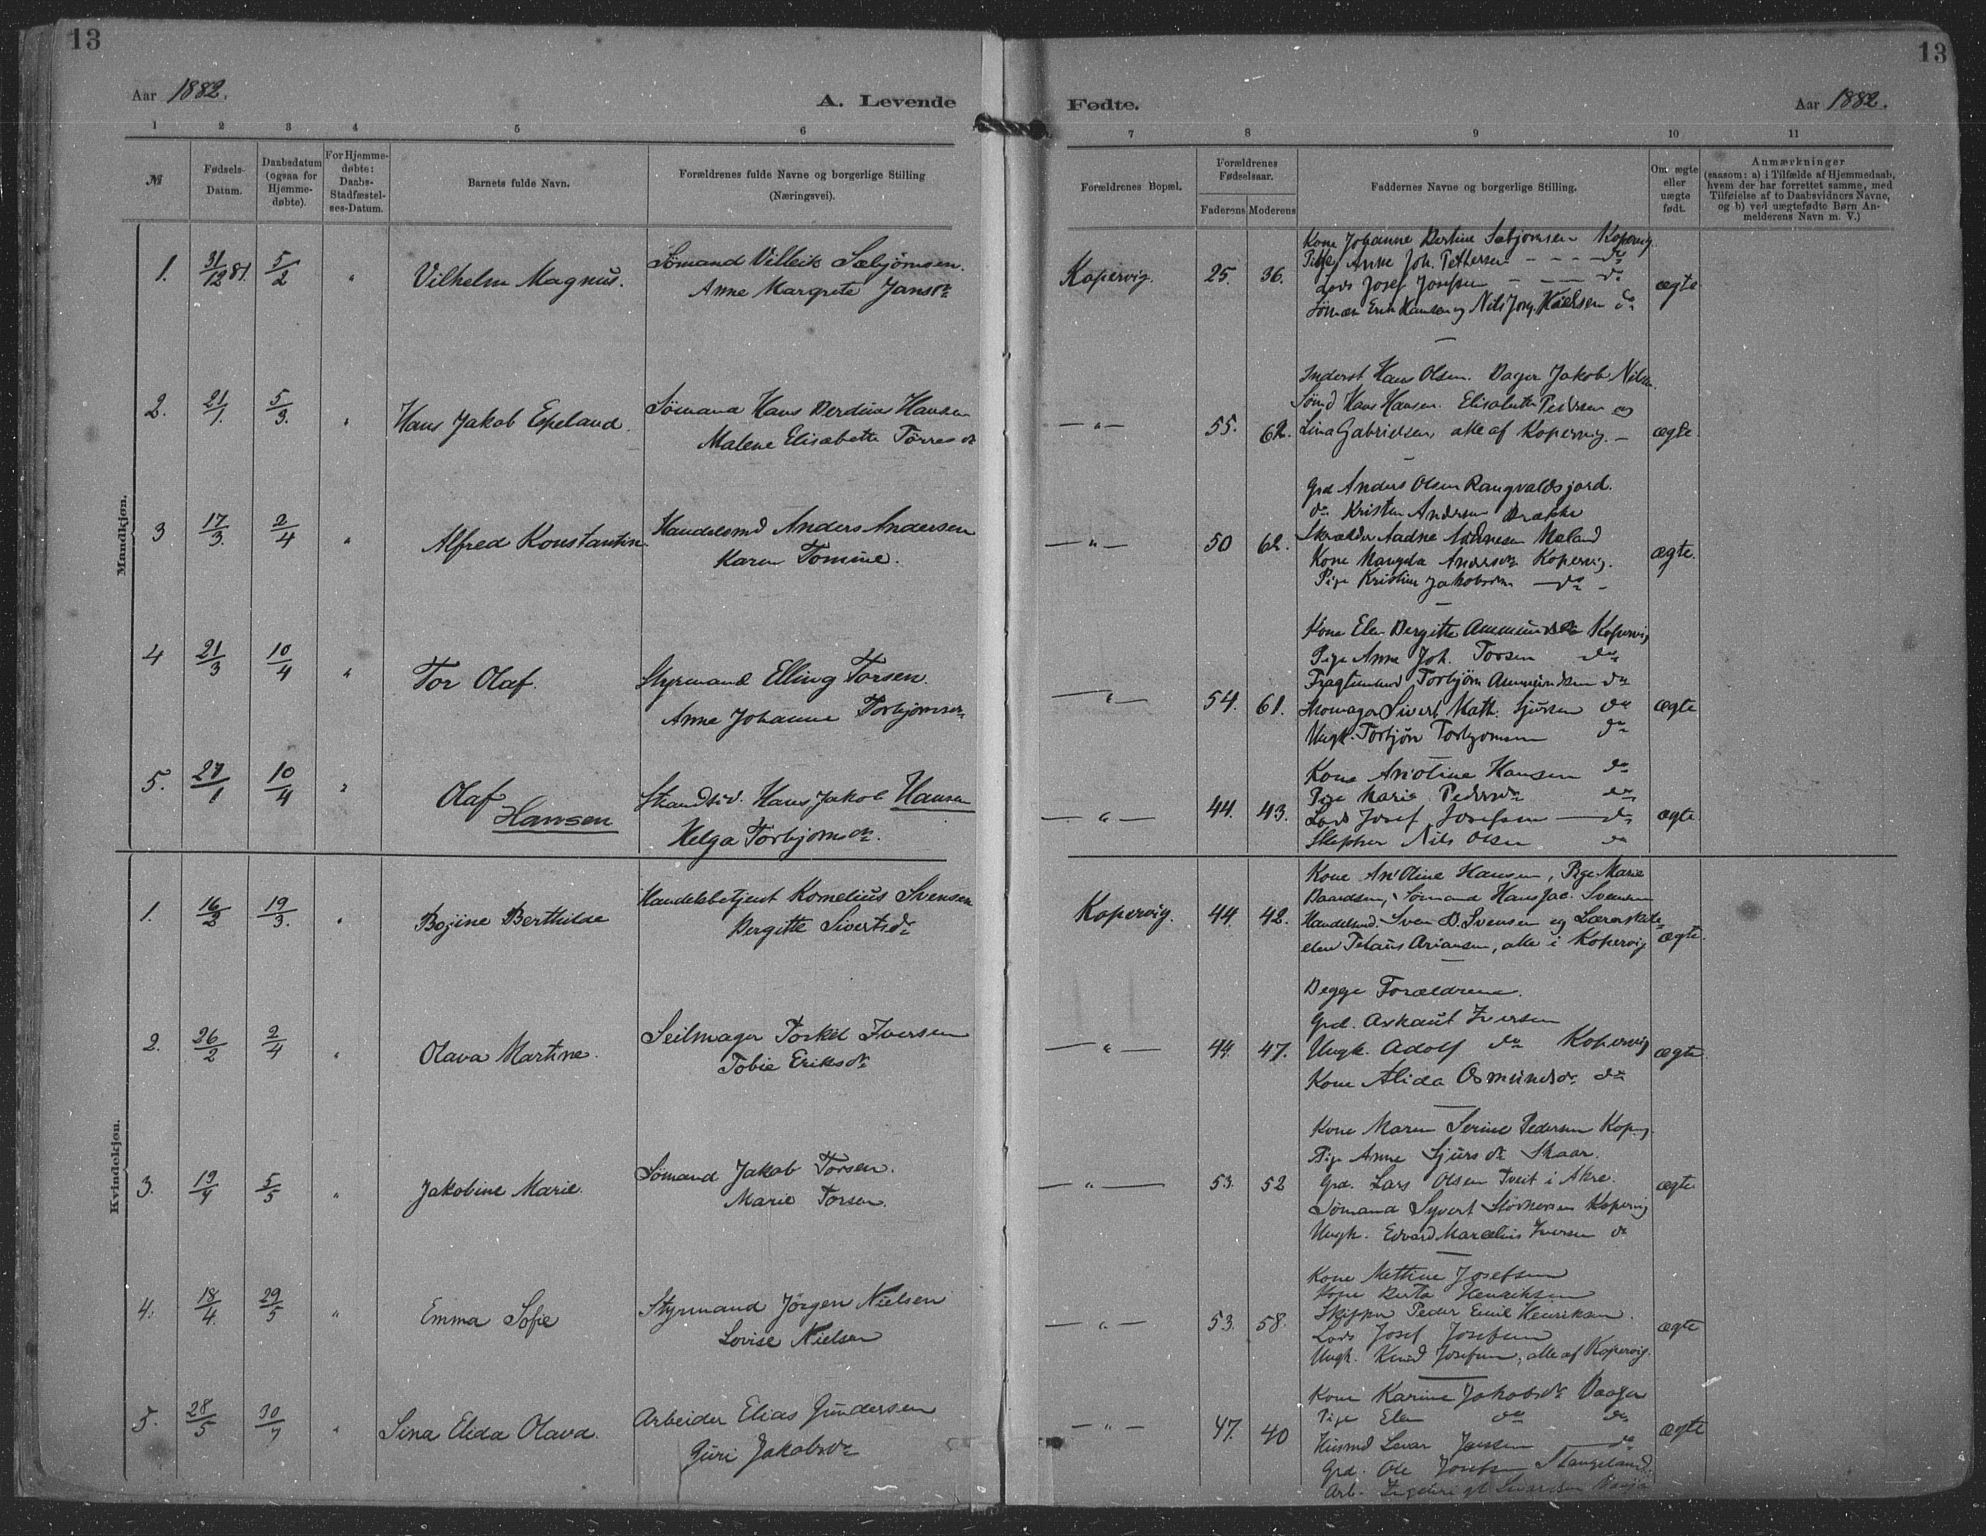 13
Aar 1882.
A. Levende
1 2 3 4 5 6
№
Fødsels-
Datum.
Daabsdatum
(ogsaa for
Hjemme-
døbte).
For Hjemme-
døbte:
Daabs-
Stadfæstel-
ses-Datum.
Barnets fulde Navn.
Forældrenes fulde Navne og borgerlige Stilling
(Næringsvei).
Mandkjøn.
1. 31/12 81. 5/2 " Vilhelm Magnus. Sømand Villeik Sæbjørnsen.
Anne Margrete Jansdr
2. 21/1. 5/3. " Hans Jakob Espeland. Sømand Hans Berdins Hansen
Malene Elisabeth Tørresdr
3 17/3. 2/4 " Alfred Konstantin Handelsmd Anders Andersen
Karen Tomine.
4 21/3 10/4 " Tor Olaf. Styrmand Elling Torsen.
Anne Johanne Torbjørnsen
5. 27/1 10/4 " Olaf Hans Jakob Hansen
Hansen
Helga Torbjørnsdr.
Kvindekjøn.
1. 16/2 19/3. " Bojine Berthilde Handelsbetjent Kornelius Svensen
Bergitte Sivertsdr
2. 26/2 2/4 " Olava Martine. Seilmager Torkel Iversen
Tobie Eriksdr
3. 19/4 5/5 " Jakobine Marie. Sømand Jakob Torsen.
Marie Torsen.
4. 18/4. 29/5 " Emma Sofie Styrmand Jørgen Nielsen
Lovise Nielsen
5. 28/5 30/7 " Sina Elida Olava. Arbeider Elias Gundersen
Guri Jakobsdr
13
Fødte.
Aar 1882.
7 8 9 10 11
Forældrenes Bopæl.
Forældrenes
Fødselsaar.
Faderens Moderens
Faddernes Navne og borgerlige Stilling.
Om ægte
eller
uægte
født.
Anmærkninger
(saasom: a) i Tilfælde af Hjemmedaab,
hvem der har forrettet samme, med
Tilføielse af to Daabsvidners Navne,
og b) ved uægtefødte Børn An-
melderens Navn m. V.)
Kone Johanne Bertine Sæbjørnsen Kopervig.
Pige Anne Joh. Pettersen - - - do
Kopervig. 25. 36. Lods Josef Josefsen - - - do ægte
Erik Hansen og Nils Jørg. Nielsen do
Inderst Hans Olsen. Bager Jakob Nilsen
Sømd Hans Hansen. Elisabeth Pedersen og
— " — 55. 62. Lina Gabrielsen, alle af Kopervig. - ægte.
Grd Anders Olsen Rangvaldsjord.
do Kristen Andersen Brække
— " — 50 62. Skrædder Aadne Meland ægte.
Kone Andersen Kopervig.
Pige Kristine Jakobsen — do -
Kone Elen Bergitte Kopervig
Pige Anne Joh. Torsen do
Torbjørn Ammundsen do
— " — 54. 61. Skomager Sivert Math. Sjursen do ægte
Ungk. Torbjørn Torbjørnsen do
Kone An'Oline Hansen do
Pige Marie Pedersdr do
— " — 44. 43. Lods Josef Josefsen — do ægte
Skipper Nils Olsen do
Kone An'Oline Hansen, Pige Marie
Baardsen, Sømand Hans Jac. Svensen
Kopervig. 44. 42. Handelsmd. Sven B. Svensen og Lærerskole-
elev Ariansen, alle i Kopervig ægte.
Begge Forældrene.
Grd. Iversen
— " — 44. 47. Ungk. Adolf do Kopervig ægte.
Kone Alida Osmundsdr do
Kone Maren Serine Pedersen Koperv.
Pige Anne Sjursdr Skaar.
— " — 53. 52 Grd. Lars Olsen Tveit i Akre. ægte
Sømand Syvert Størkersen Kopervig
Ungk. Edvard Marcelius Iversen do
Kone Mettine Josefsen
Kone Berta Henriksen
Skipper Peder Emil Henriksen.
— " — 53. 58. Lods Josef Josefsen ægte
Ungk. Knud Josefsen, alle af Kopervig.
Kone Karine Jakobsdr Vaage
Pige Elen do do
— " — 47. 40 Husmd Jansen — do ægte
Grd. Ole Josefsen Stangeland.